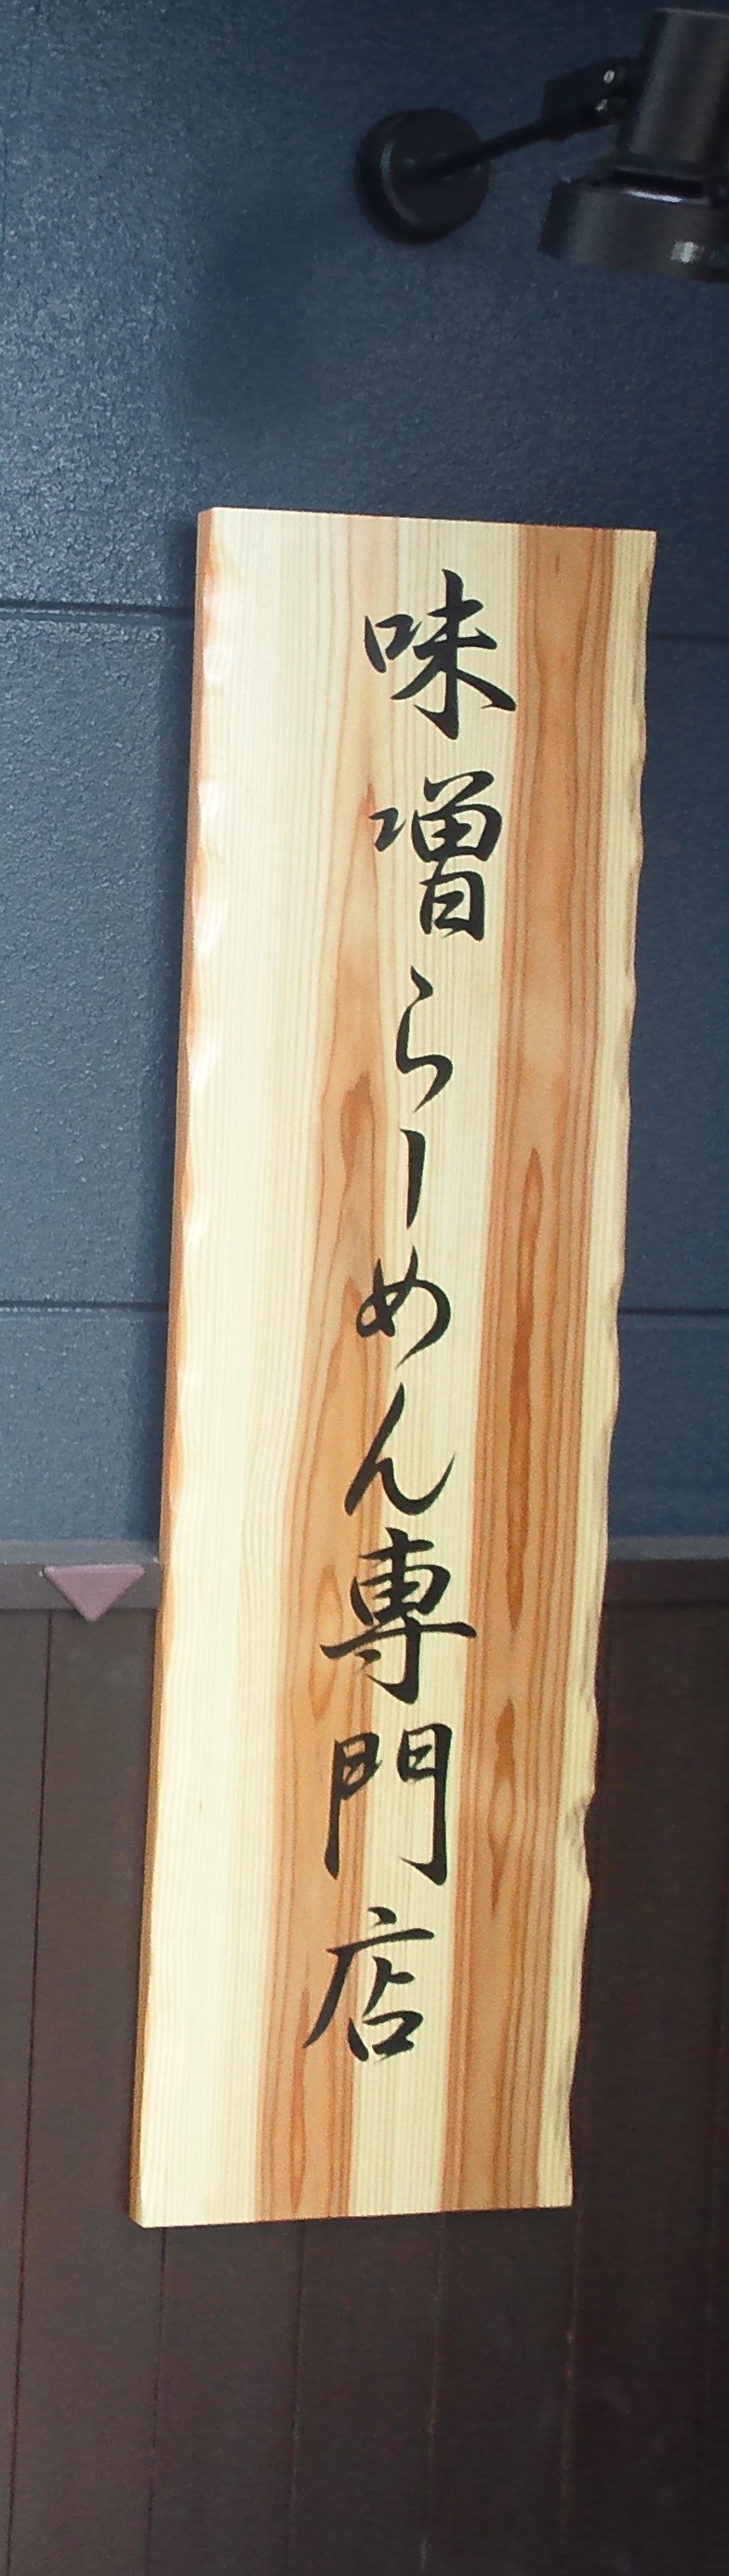 味噌らーめん専門店